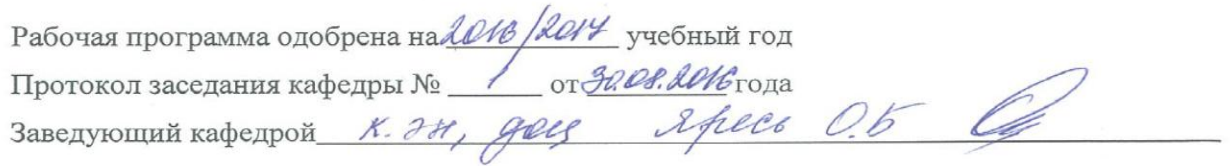 Рабочая программа одобрена на 2016/2017 учебный год
Протокол заседания кафедры № 1 от 30.08.2016 года
Заведующий кафедрой к.эн, доц Яресь О.Б